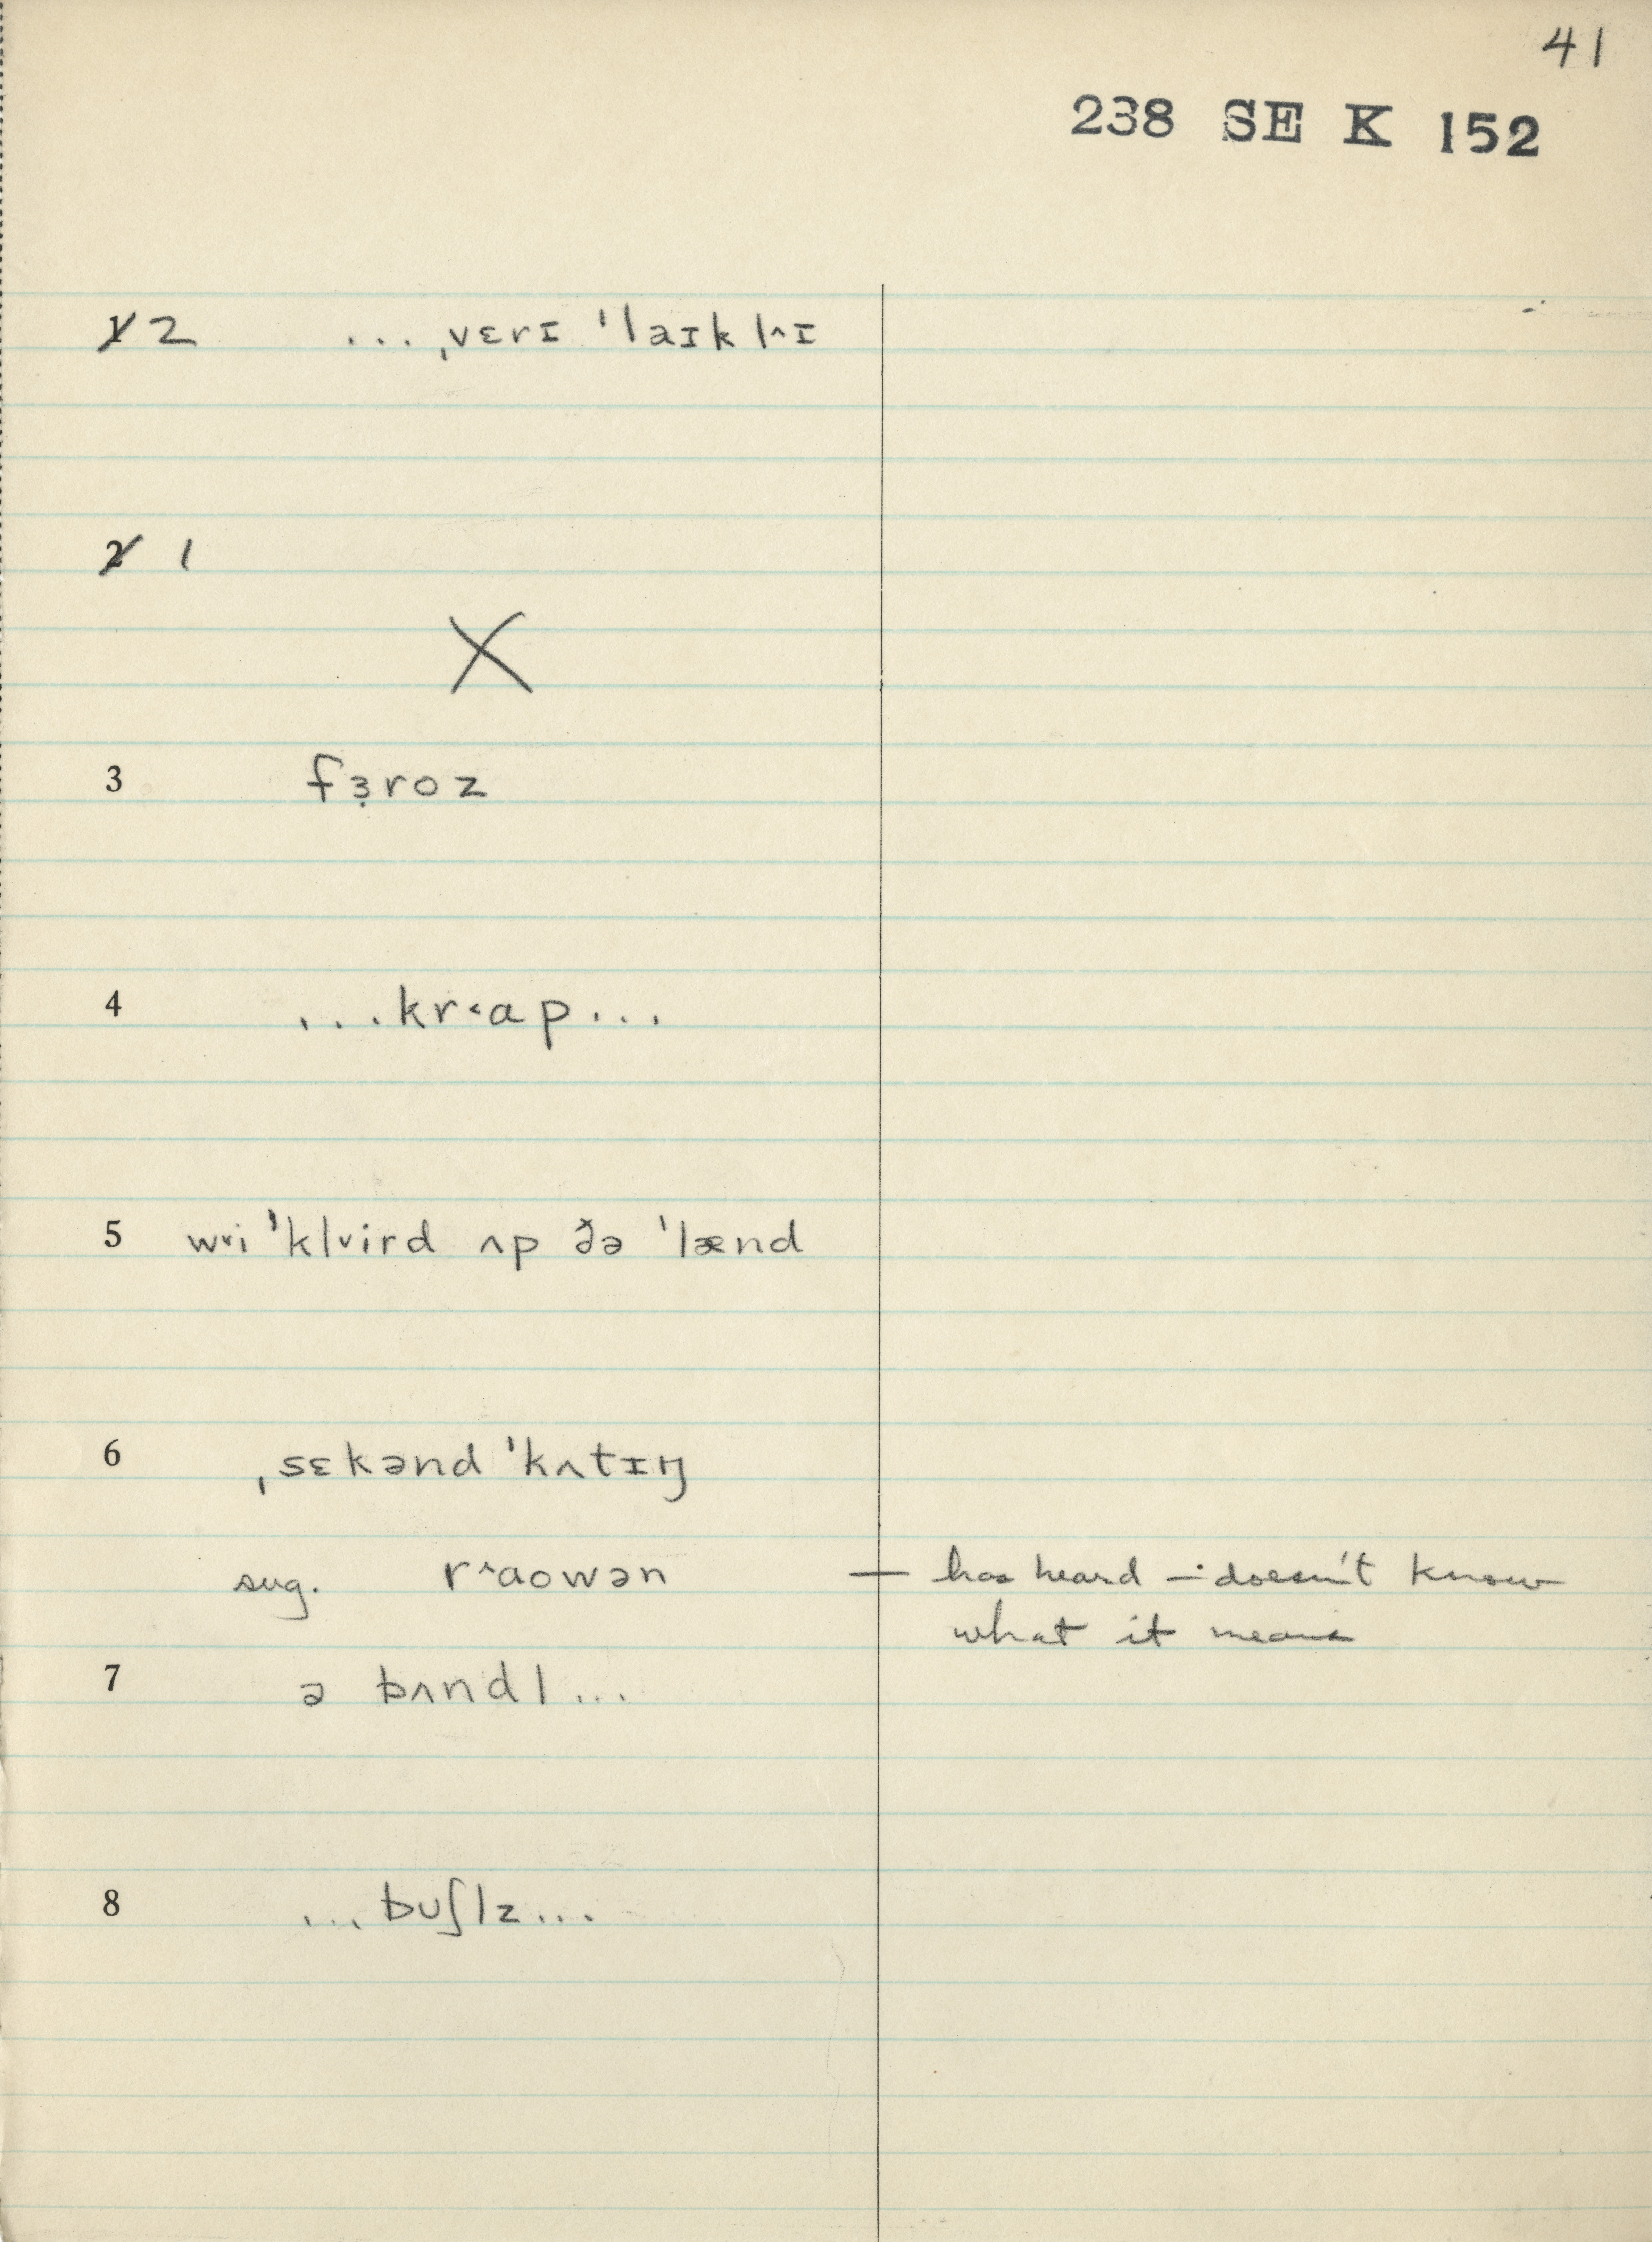 41
238 SE K 152
1 2 ... ˌvɛrɪ ˈlaɪkl^ɪ
2 1
X
3 fɜ̣roz
4 ...kr˂ɑp...
5 w˅i ˈkl˅ird ʌp ðə ˈlænd
6 ˌsɛkənd ˈkʌtɪŋ
sug. r^ɑowən — has heard – doesn't know
what it means
7 ə bʌndl...
8 ...bᴜʃlz...